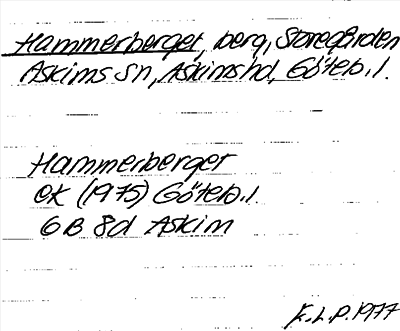 Hammerberget, berg, Storegården
Askims sn, Askims hd, Göteb. l.
Hammerberget
ek (1975) Göteb. l.
6B 8d Askim
K.L.P. 1977